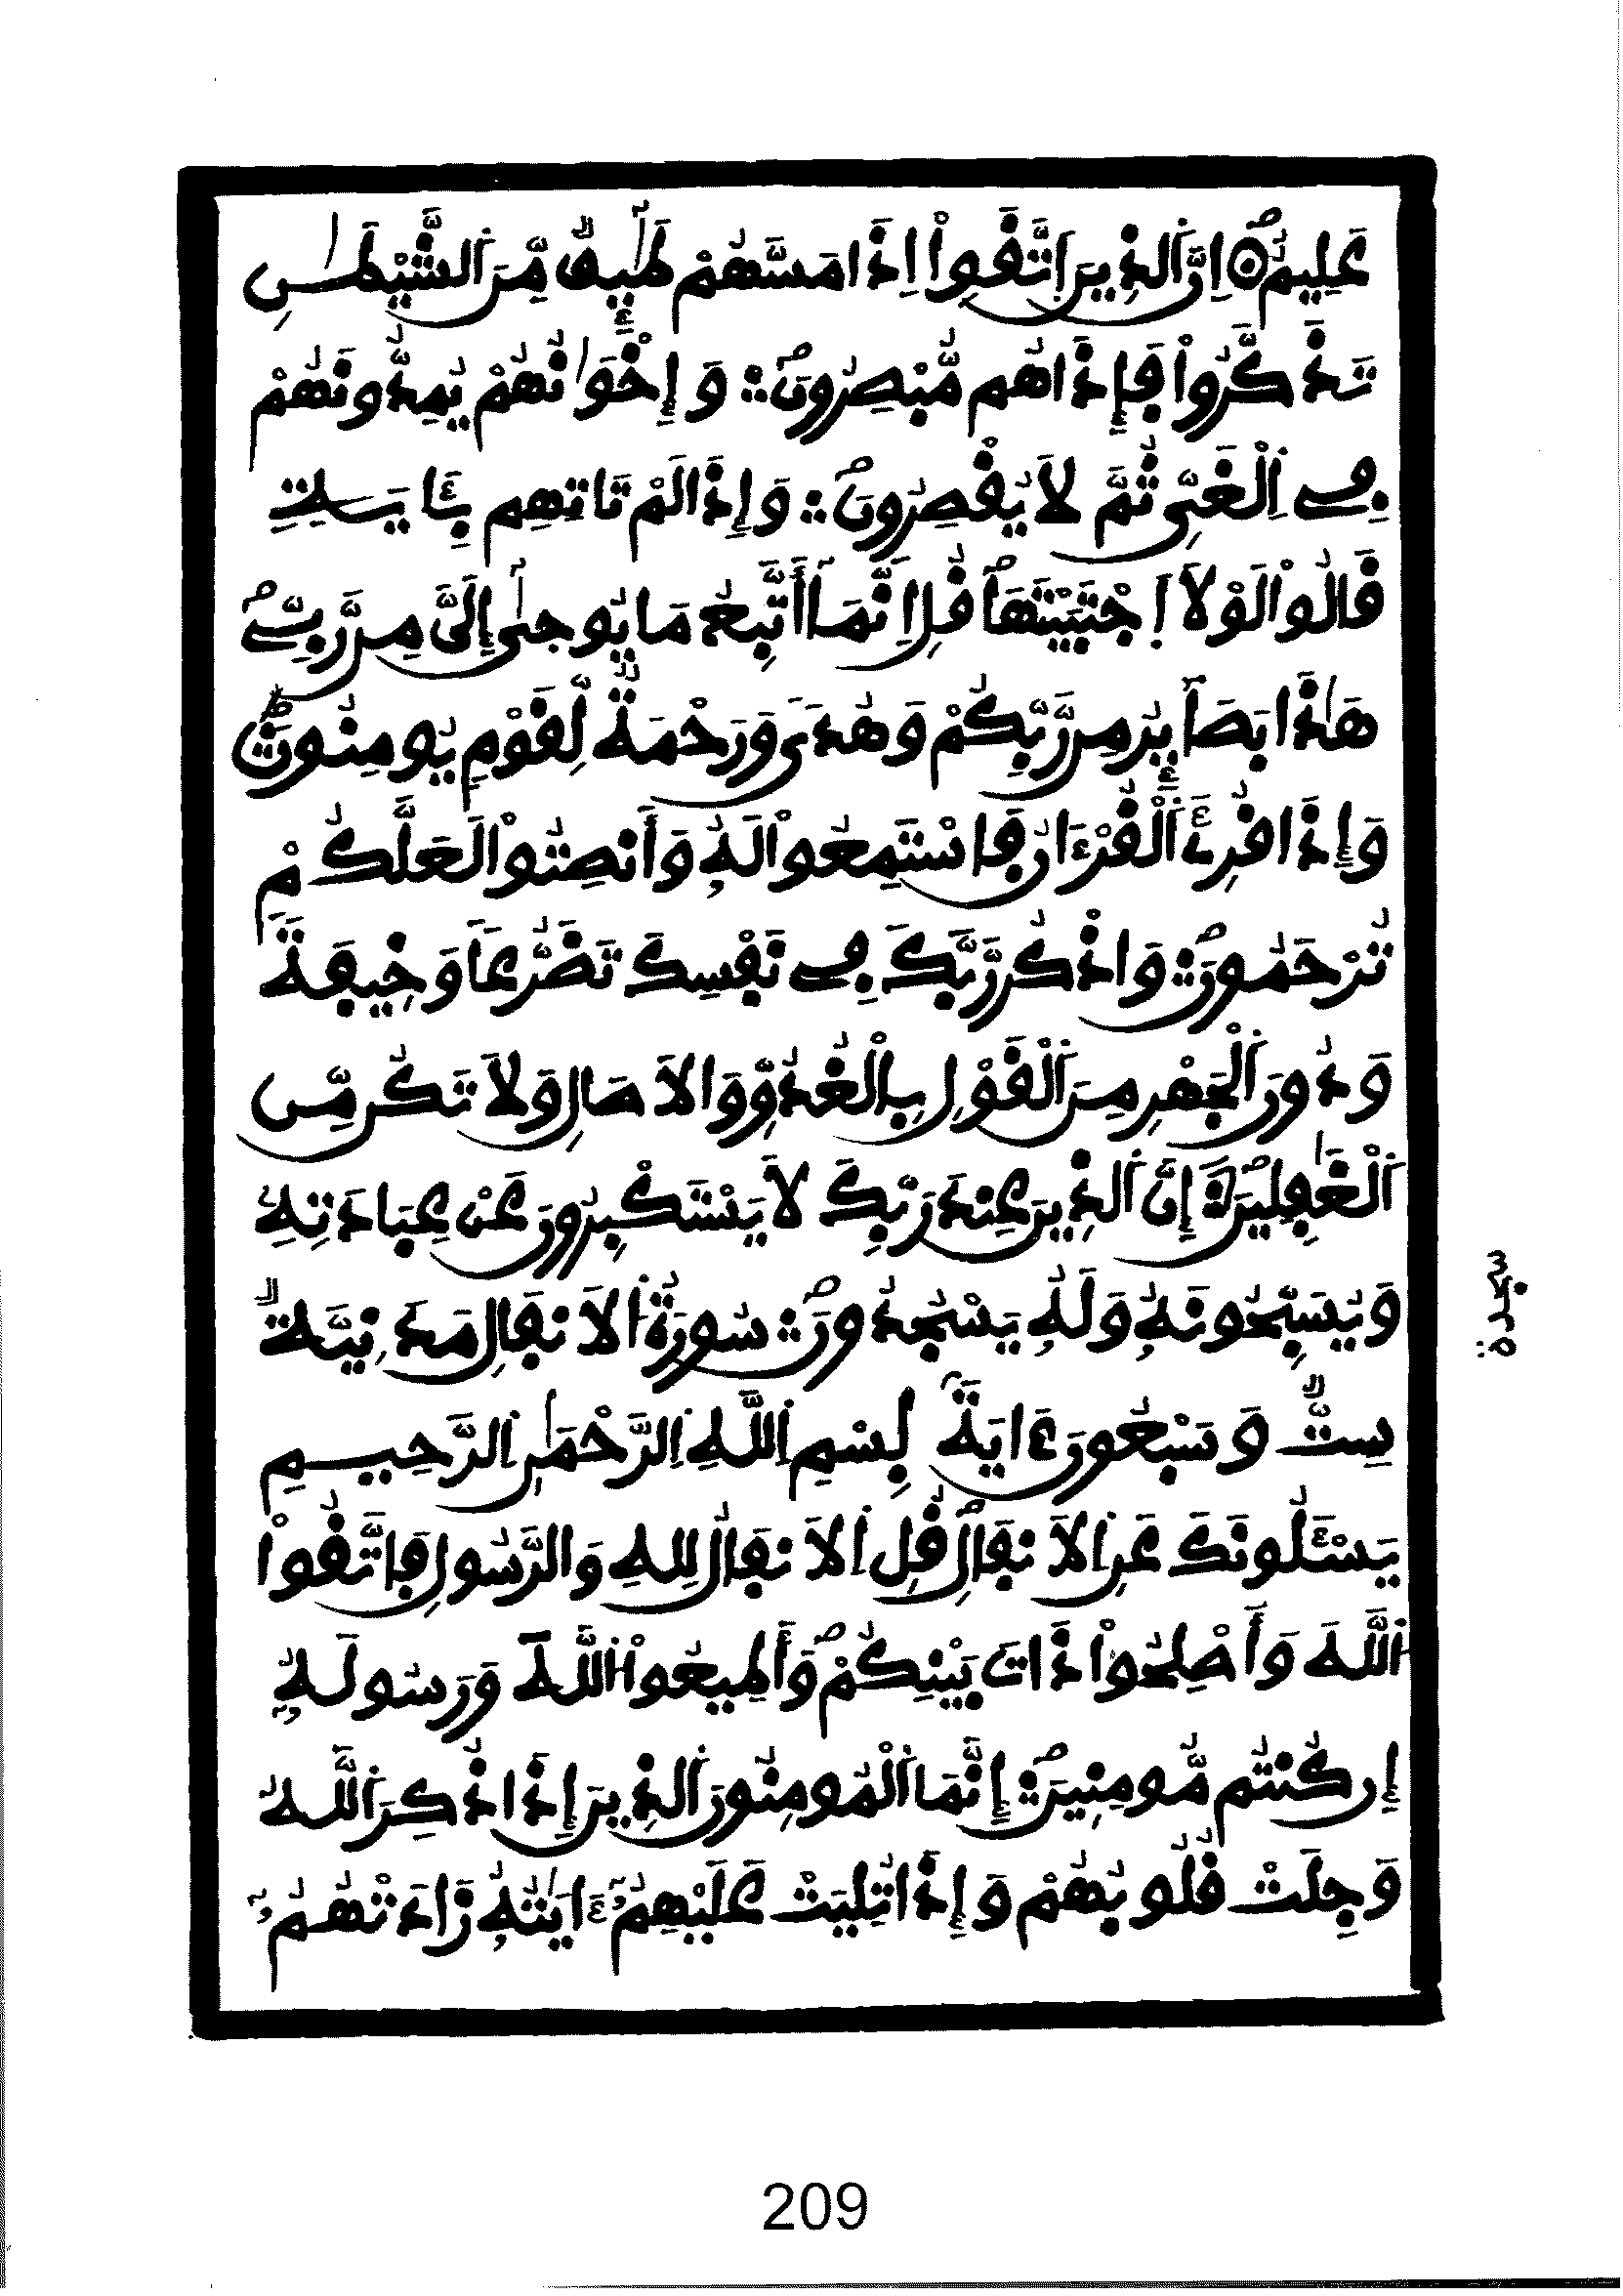 عَلِيمٌ اِنَّ اَلذِينَ اَتَّقَواْ اِذَا مَسَّهُمْ طَٰٓئِفٌ مِّنَ اَلشَّيْطَٰنِ
تَذَكَّرُواْ فَإِذَا هُم مُّبْصِرُونَ وَإِخْوَٰنُهُمْ يُمِدُّونَهُمْ
فِے اِلْغَيِّ ثُمَّ لَا يُقْصِرُونَ وَإِذَا لَمْ تَاتِهِم بِـَٔايَةٖ
قَالُواْ لَوْلَا اَجْتَبَيْتَهَا قُلِ اِنَّمَآ أَتَّبِعُ مَا يُوحَىٰٓ إِلَيَّ مِن رَّبِّے
هَٰذَا بَصَآئِرُ مِن رَّبِّكُمْ وَهُدىٗ وَرَحْمَةٌ لِّقَوْمٖ يُومِنُونَ
وَإِذَا قُرِئَ اَلْقُرْءَانُ فَاسْتَمِعُواْ لَهُۥ وَأَنصِتُواْ لَعَلَّكُمْ
تُرْحَمُونَ وَاذْكُر رَّبَّكَ فِے نَفْسِكَ تَضَرُّعاً وَخِيفَةً
وَدُونَ اَلْجَهْرِ مِنَ اَلْقَوْلِ بِالْغُدُوِّ وَالَاصَالِ وَلَا تَكُن مِّنَ
اَلْغَٰفِلِينَ إِنَّ اَلذِينَ عِندَ رَبِّكَ لَا يَسْتَكْبِرُونَ عَنْ عِبَادَتِهِۦ
وَيُسَبِّحُونَهُۥ وَلَهُۥ يَسْجُدُونَ سُورَةُ اَلَانفَالِ مَدَنِيَّةٌ
سِتٌّ وَسَبْعُونَ ءَايَةً بِسْمِ اِللَّهِ اِلرَّحْمَٰنِ اِلرَّحِيمِ
يَسْـَٔلُونَكَ عَنِ اِلَانفَالِ قُلِ اِلَانفَالُ لِلهِ وَالرَّسُولِ فَاتَّقُواْ
اُللَّهَ وَأَصْلِحُواْ ذَاتَ بَيْنِكُمْ وَأَطِيعُواْ اُللَّهَ وَرَسُولَهُۥٓ
إِن كُنتُم مُّومِنِينَ إِنَّمَا اَلْمُومِنُونَ اَلذِينَ إِذَا ذُكِرَ اَللَّهُ
وَجِلَتْ قُلُوبُهُمْ وَإِذَا تُلِيَتْ عَلَيْهِمُۥٓ ءَايَٰتُهُۥ زَادَتْهُمُۥٓ
سجدة
209